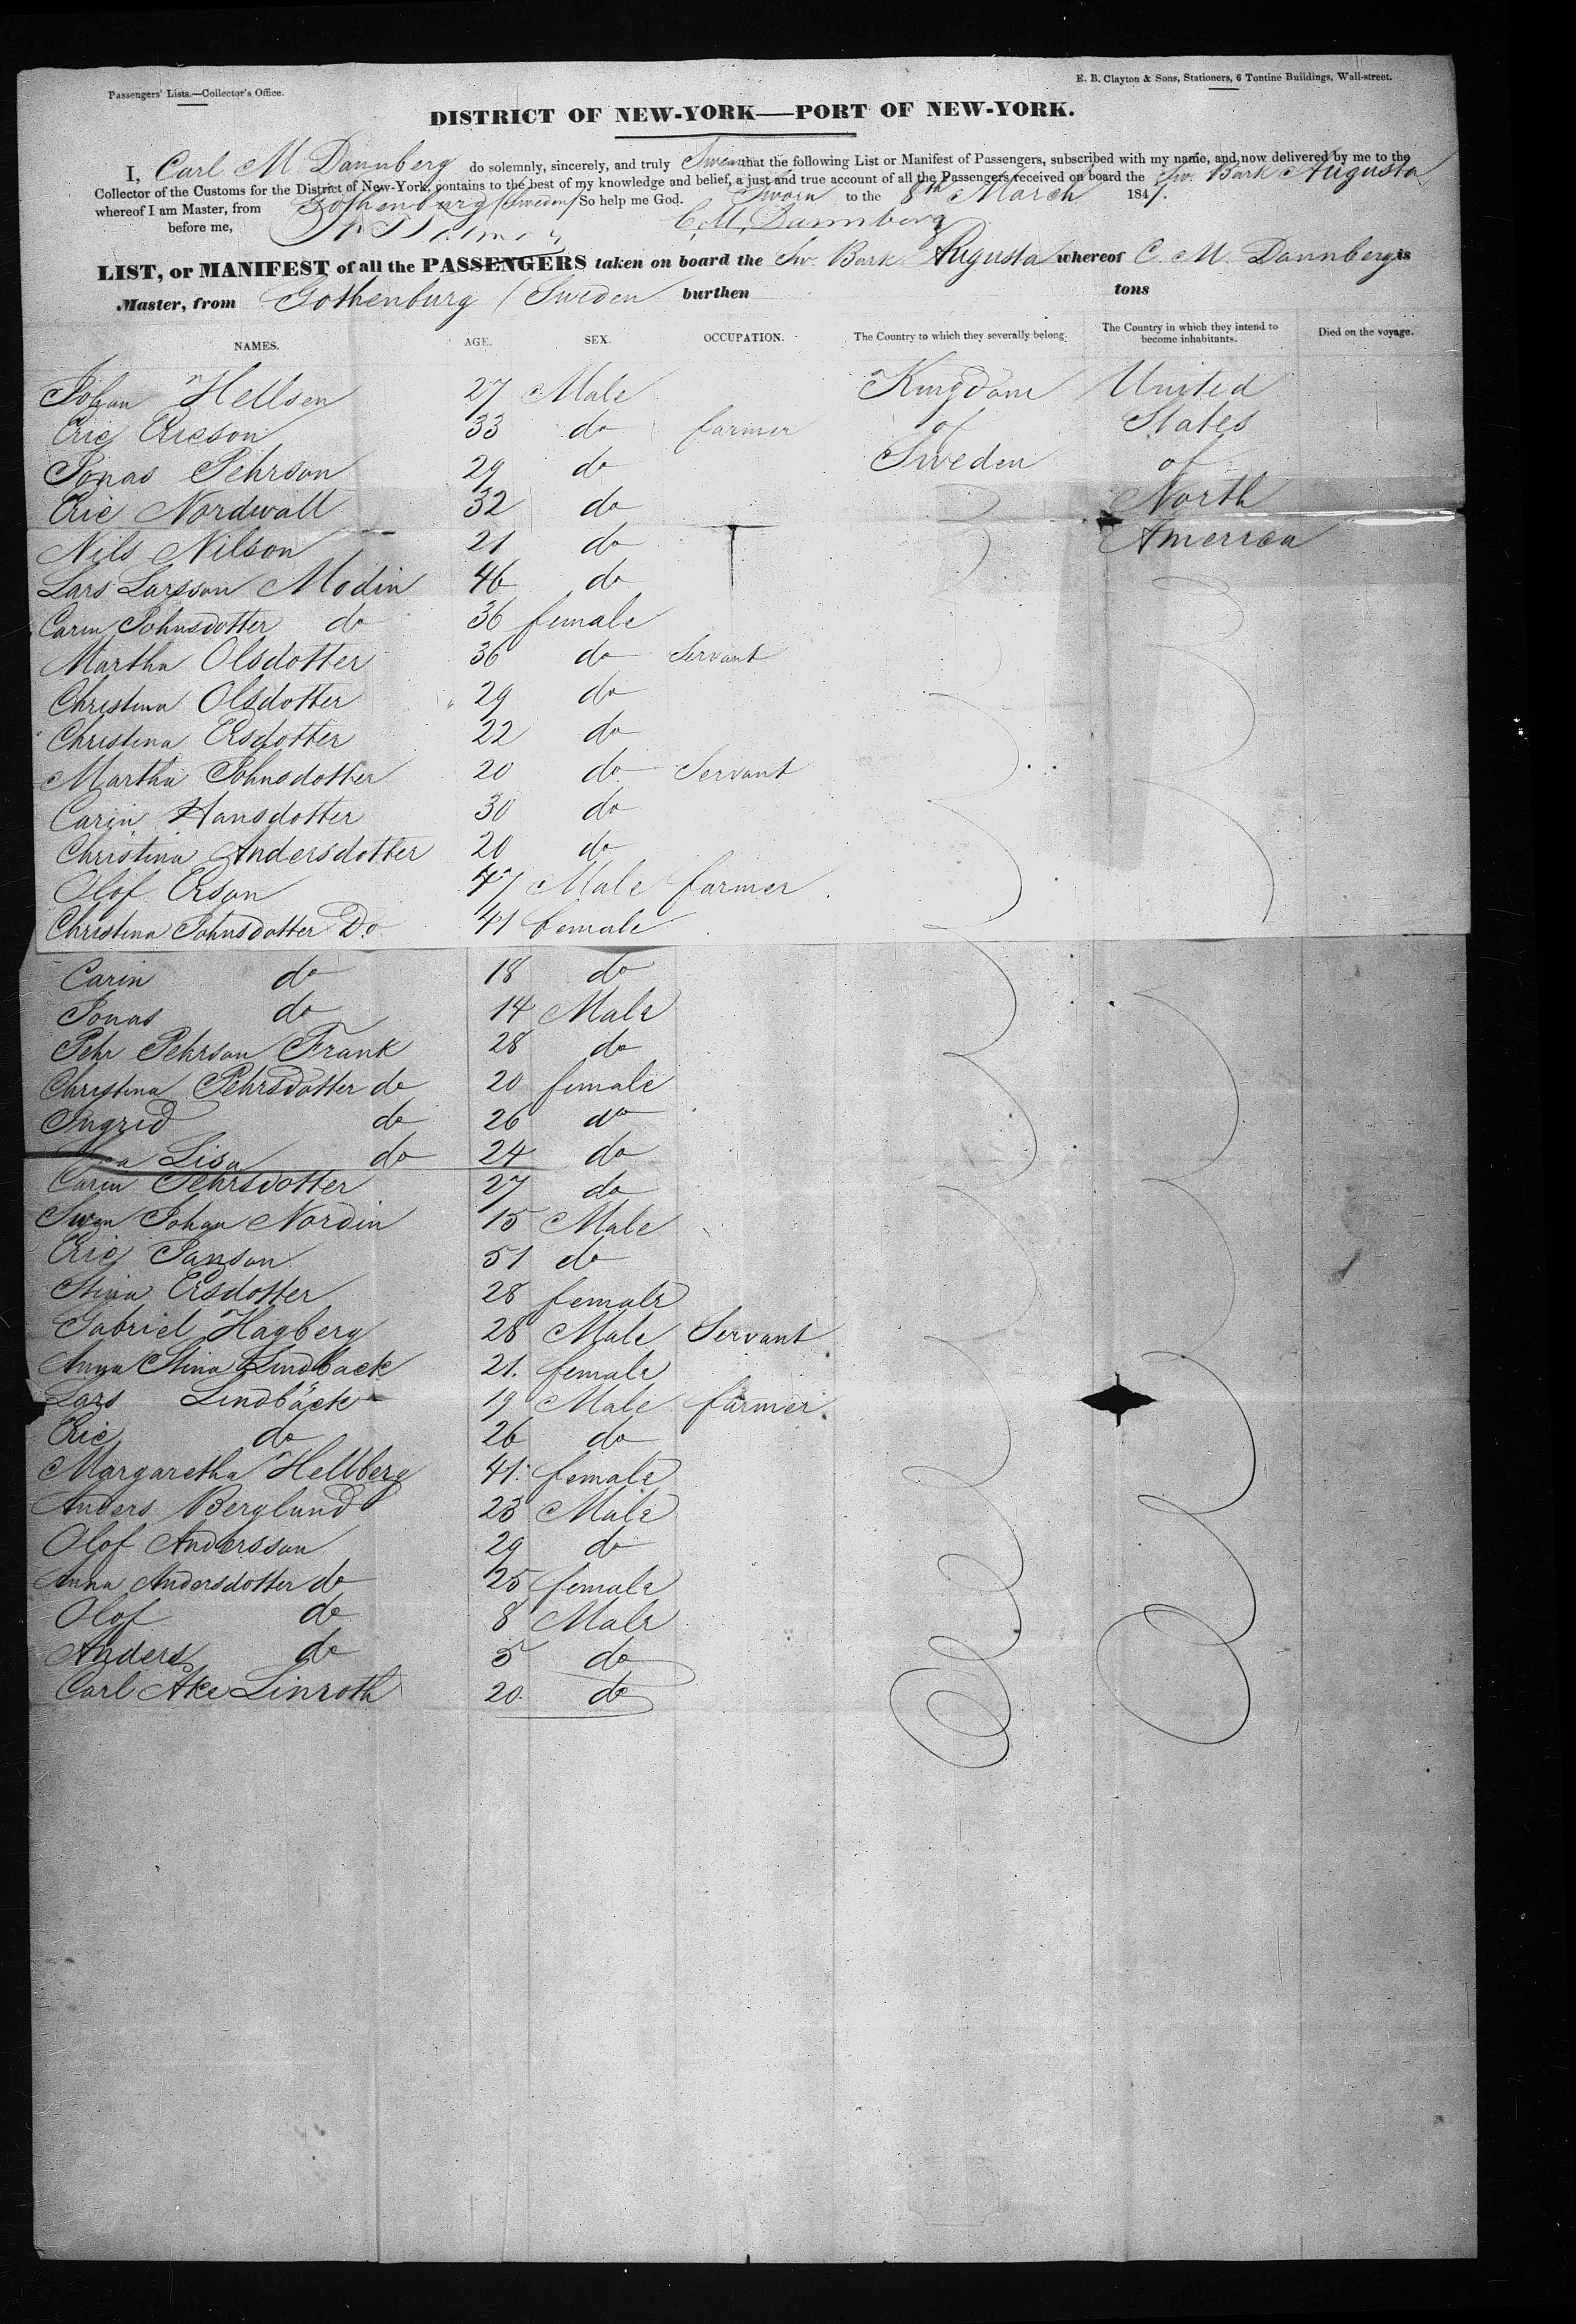 Passengers' Lists.—Collector's Office.
E. B. Clayton & Sons, Stationers, 6 Tontine Buildings, Wall-street.
DISTRICT OF NEW-YORK—PORT OF NEW-YORK.
I, Carl M Dannberg do solemnly, sincerely, and truly Swear that the following List or Manifest of Passengers, subscribed with my name, and now delivered by me to the
Collector of the Customs for the District of New-York, contains to the best of my knowledge and belief, a just and true account of all the Passengers received on board the Sw. Bark Augusta
whereof I am Master, from Gothenburg (Sweden) So help me God. Sworn to the 8th March 1847.
before me, C. M. Dannberg
LIST, or MANIFEST of all the PASSENGERS taken on board the Sw. Bark Augusta whereof C. M. Dannberg is
Master, from Gothenburg / Sweden burthen tons
NAMES. AGE. SEX. OCCUPATION. The Country to which they severally belong. The Country in which they intend to become inhabitants. Died on the voyage.
Johan Hellsen 27 Male Kingdom United
Eric Ericson 33 do farmer of States
Jonas Pehrson 29 do Sweden of
Eric Nordwall 32 do North
Nils Nilson 21 do America
Lars Larsson Modin 46 do
Carin Johnsdotter do 36 female
Martha Olsdotter 36 do Servant
Christina Olsdotter 29 do
Christina Ersdotter 22 do
Martha Johnsdotter 20 do Servant
Carin Hansdotter 30 do
Christina Andersdotter 20 do
Olof Erson 47 Male farmer
Christina Johnsdotter Do 41 female
Carin do 18 do
Jonas do 14 Male
Pehr Pehrson Frank 28 do
Christina Pehrsdotter do 20 female
Ingrid do 26 do
Lisa do 24 do
Carin Pehrsdotter 27 do
Swen Johan Nordin 15 Male
Eric Janson 51 do
Stina Ersdotter 28 female
Gabriel Hagberg 28 Male Servant
Anna Stina Lindback 21. female
Lars Lindbäck 19 Male farmer.
Eric do 26 do
Margaretha Hellberg 41. female
Anders Berglund 23 Male
Olof Andersson 29 do
Anna Andersdotter do 25 female
Olof do 8 Male
Anders do 5 do
Carl Ake Linroth 20. do